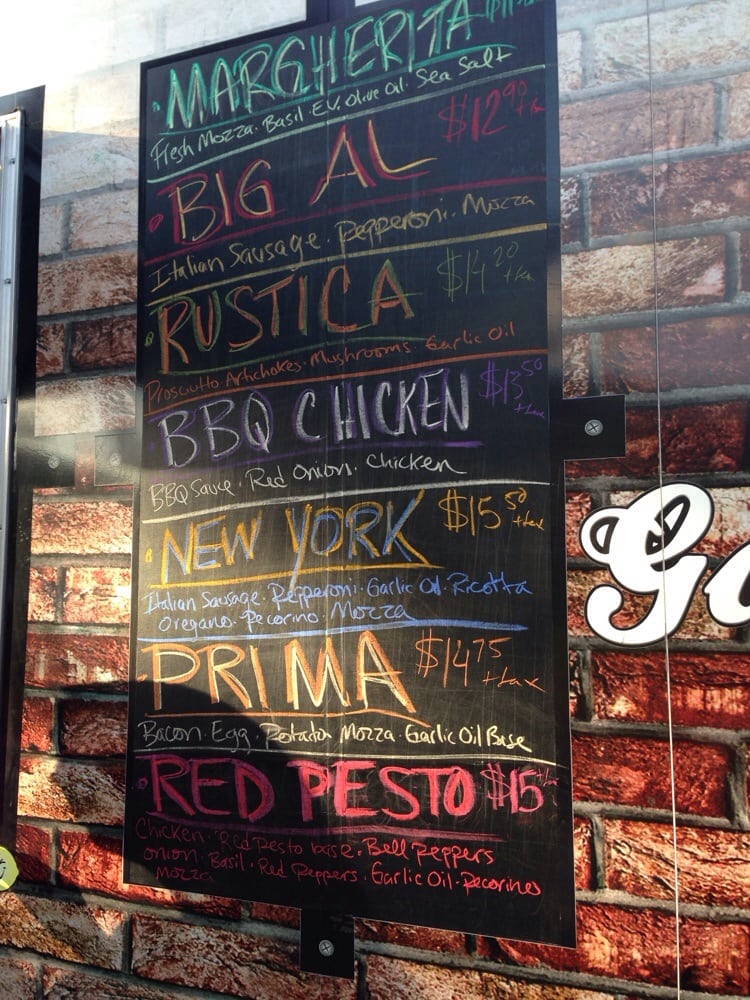 MARGHERITA
Fresh Mozza · Basil · E.V. Olive Oil · Sea Salt
BIG AL $12.90 + tax
Italian Sausage · Pepperoni · Mozza
RUSTICA $14.20 + tax
Prosciutto Artichokes · Mushrooms · Garlic Oil
BBQ CHICKEN $13.50 + tax
BBQ Sauce · Red Onion · Chicken
NEW YORK $15.50 + tax
Italian Sausage · Pepperoni · Garlic Oil · Ricotta
Oregano · Pecorino · Mozza
PRIMA $14.75 + tax
Bacon · Egg · Potato Mozza · Garlic Oil Base
RED PESTO $15 + tax
Chicken · Red Pesto base · Bell Peppers
onion · Basil · Red Peppers · Garlic Oil · Pecorino
Mozza